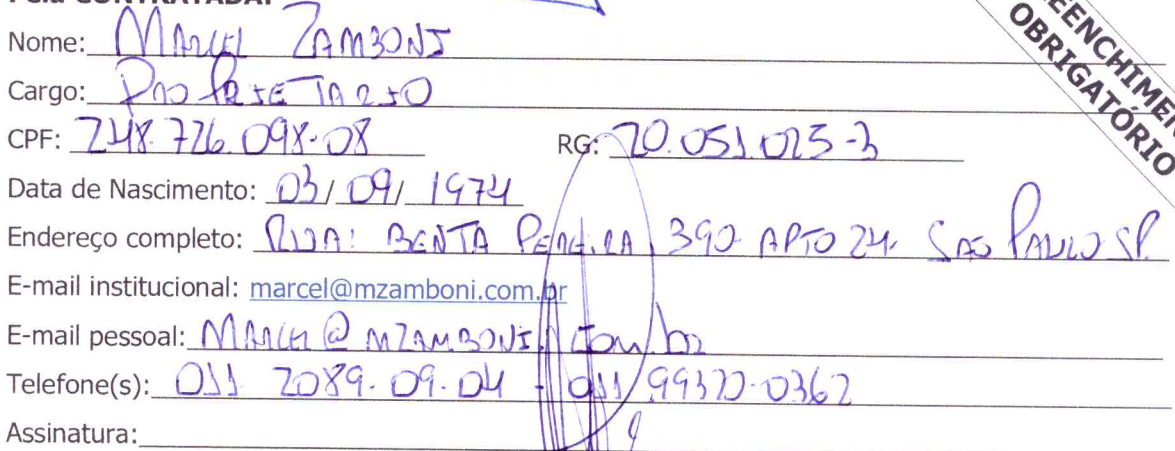 Pela CONTRATADA:
Nome: MARCEL ZAMBONI
Cargo: PROPRIETARIO
CPF: 248.726.098-08 RG: 20.051.025-3
Data de Nascimento: 03/09/1974
Endereço completo: RUA: BENTA PEREIRA, 390 APTO 24. SAO PAULO SP.
E-mail institucional: marcel@mzamboni.com.br
E-mail pessoal: MARCEL@MZAMBONI.com.br
Telefone(s): 011 2089.09.04 - 011
Assinatura:
OBRIGATÓRIO